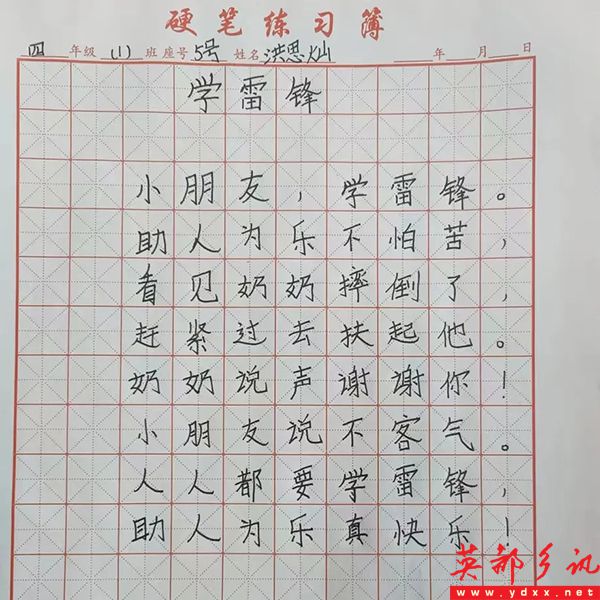 硬笔练习簿
四年级(1)班座号5号姓名洪思灿 年 月 日
学雷锋
小朋友,学雷锋。
助人为乐不怕苦,
看见奶奶摔倒了,
赶紧过去扶起他。
奶奶说声谢谢你!
小朋友说不客气。
人人都要学雷锋,
助人为乐真快乐!
英都乡讯
www.ydxx.net